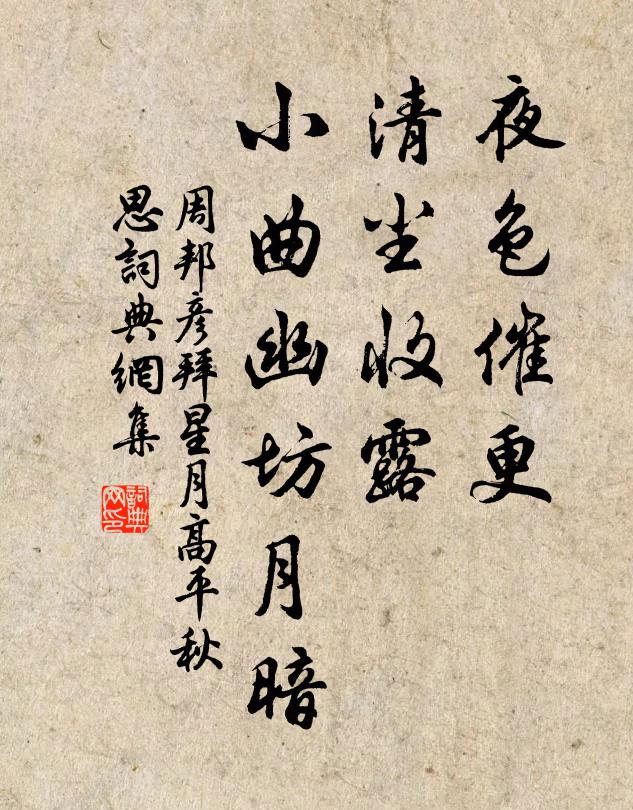 夜色催更
清尘收露
小曲幽坊月暗
周邦彦拜星月高平秋
思詞典網集
詞典
网印